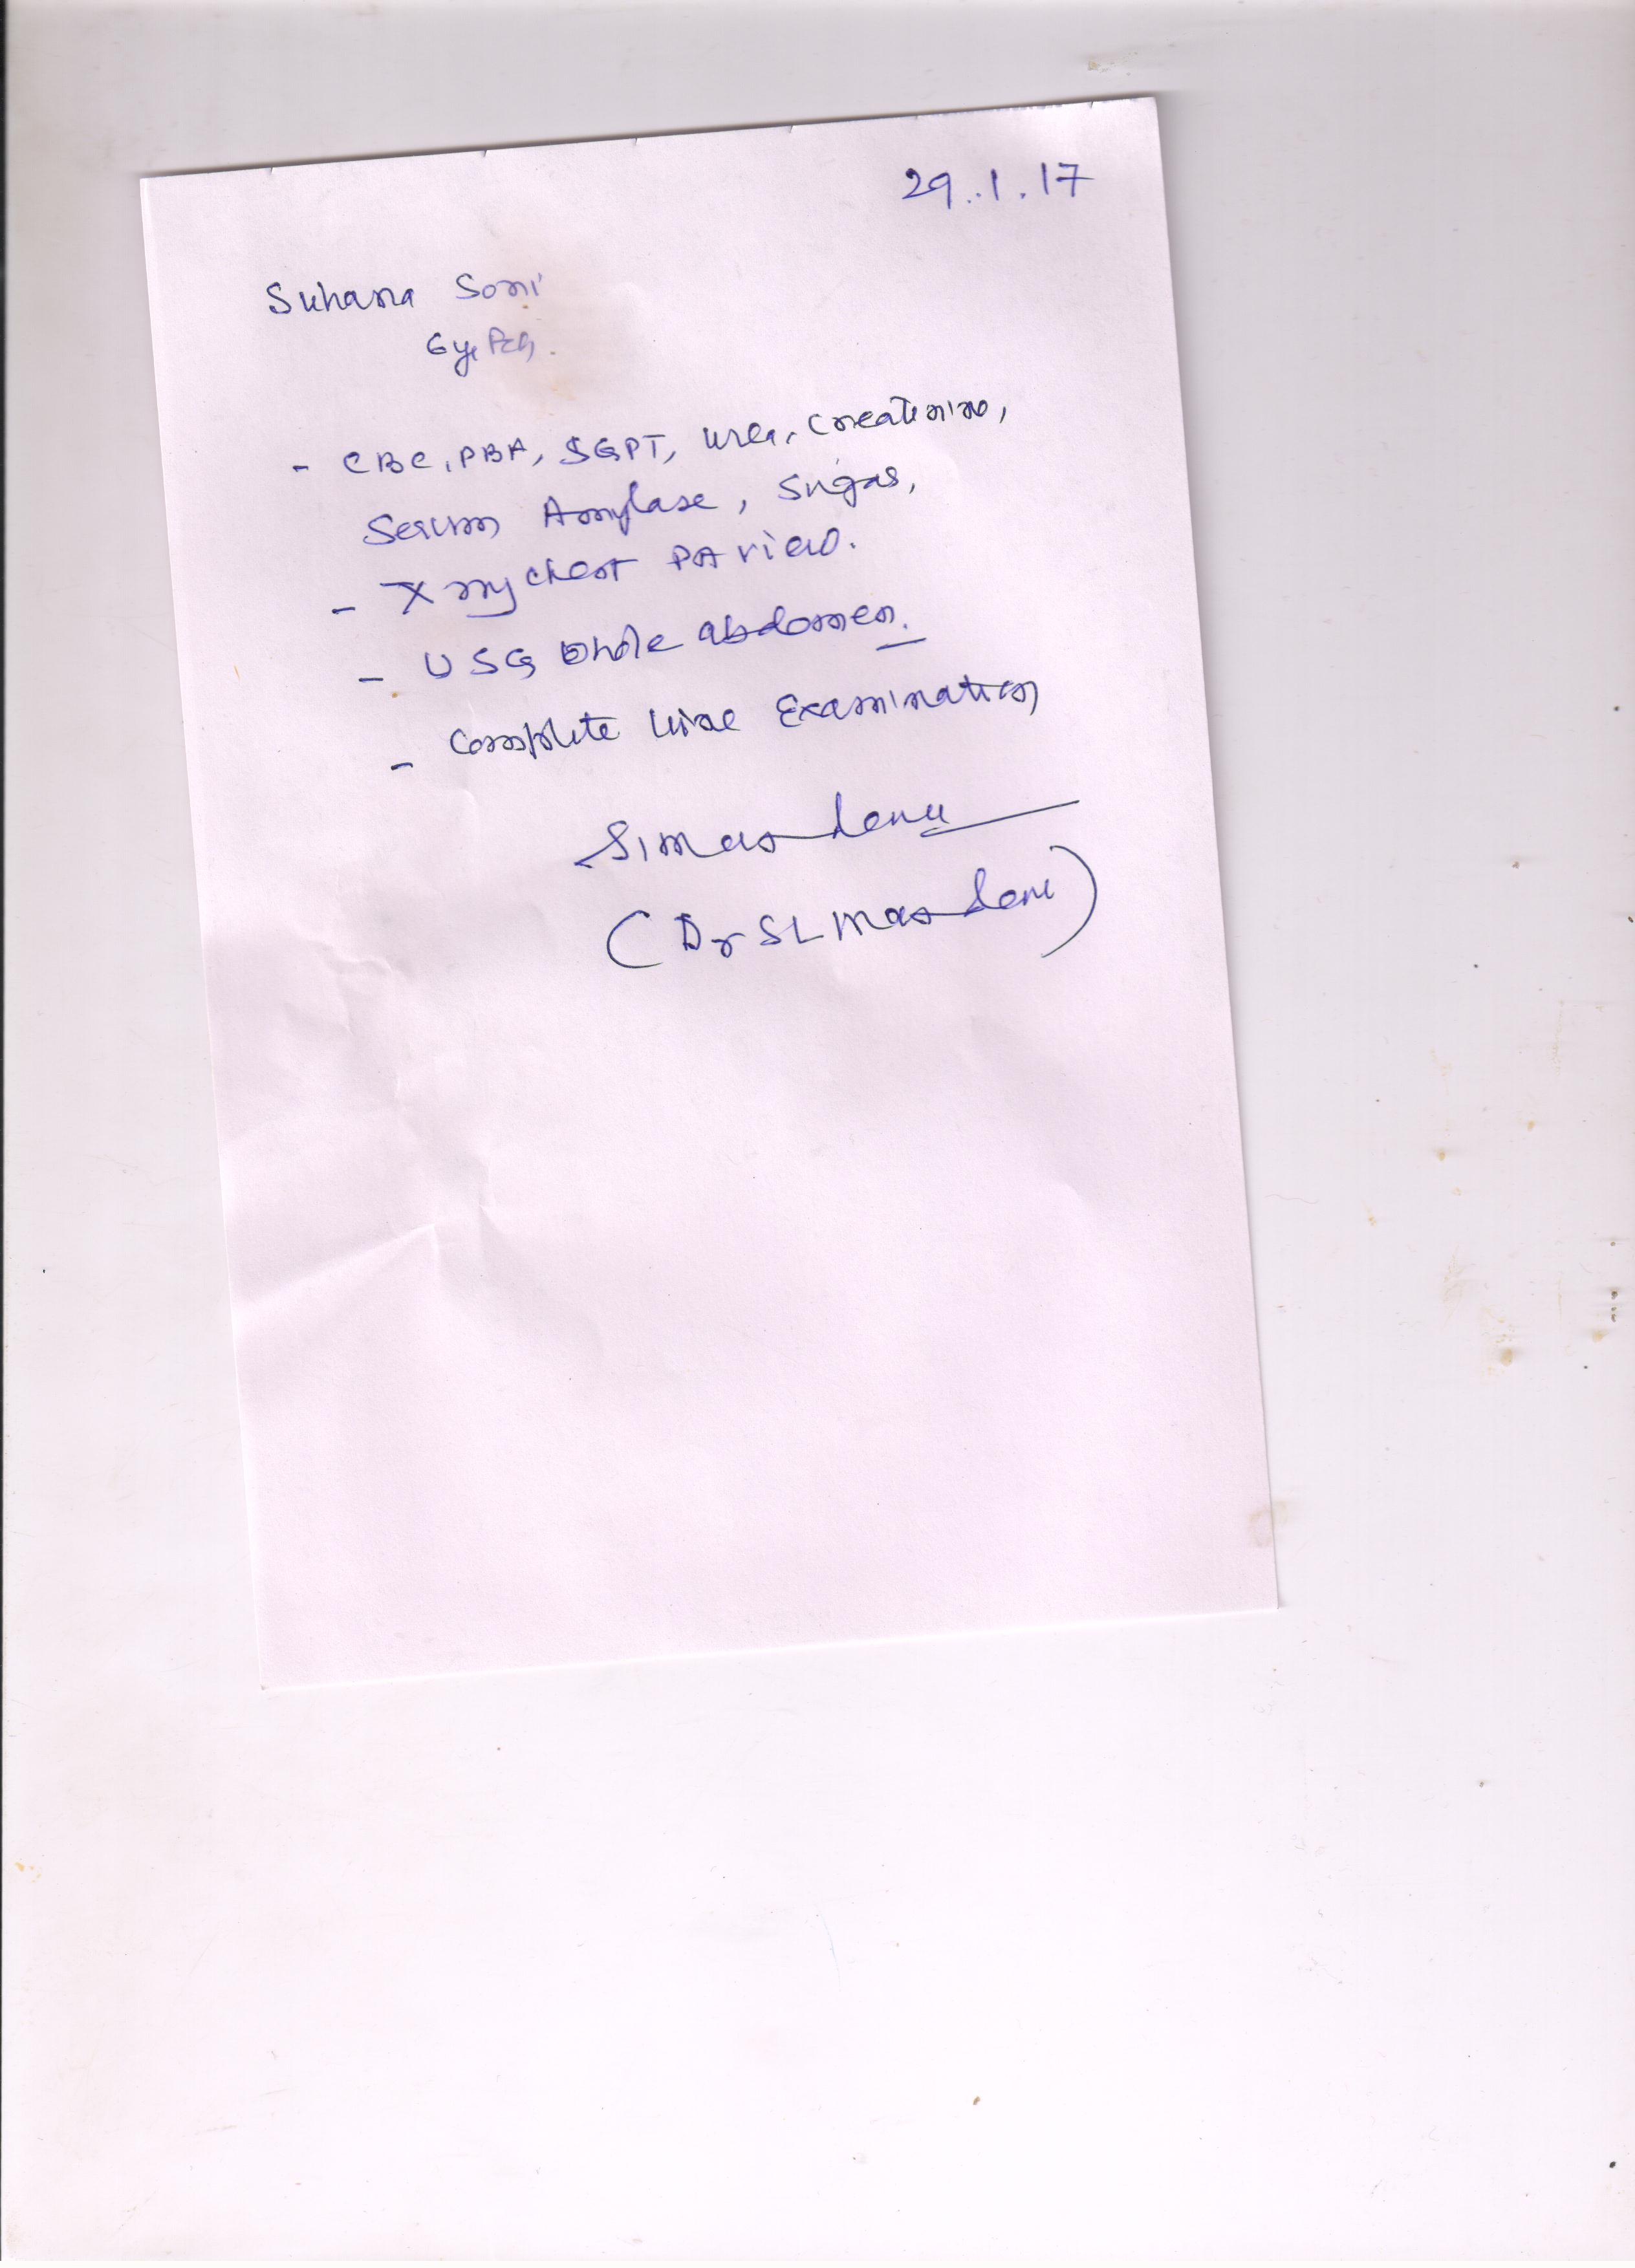 29.1.17
Suhana Soni
6yr Fch.
- CBC, PBF, SGPT, Urea, Creatinine,
Serum Amylase, Sugar,
- X ray chest PA view.
- USG whole abdomen.
- Complete Urine Examination
SLMandawi
(Dr SL Mandawi)